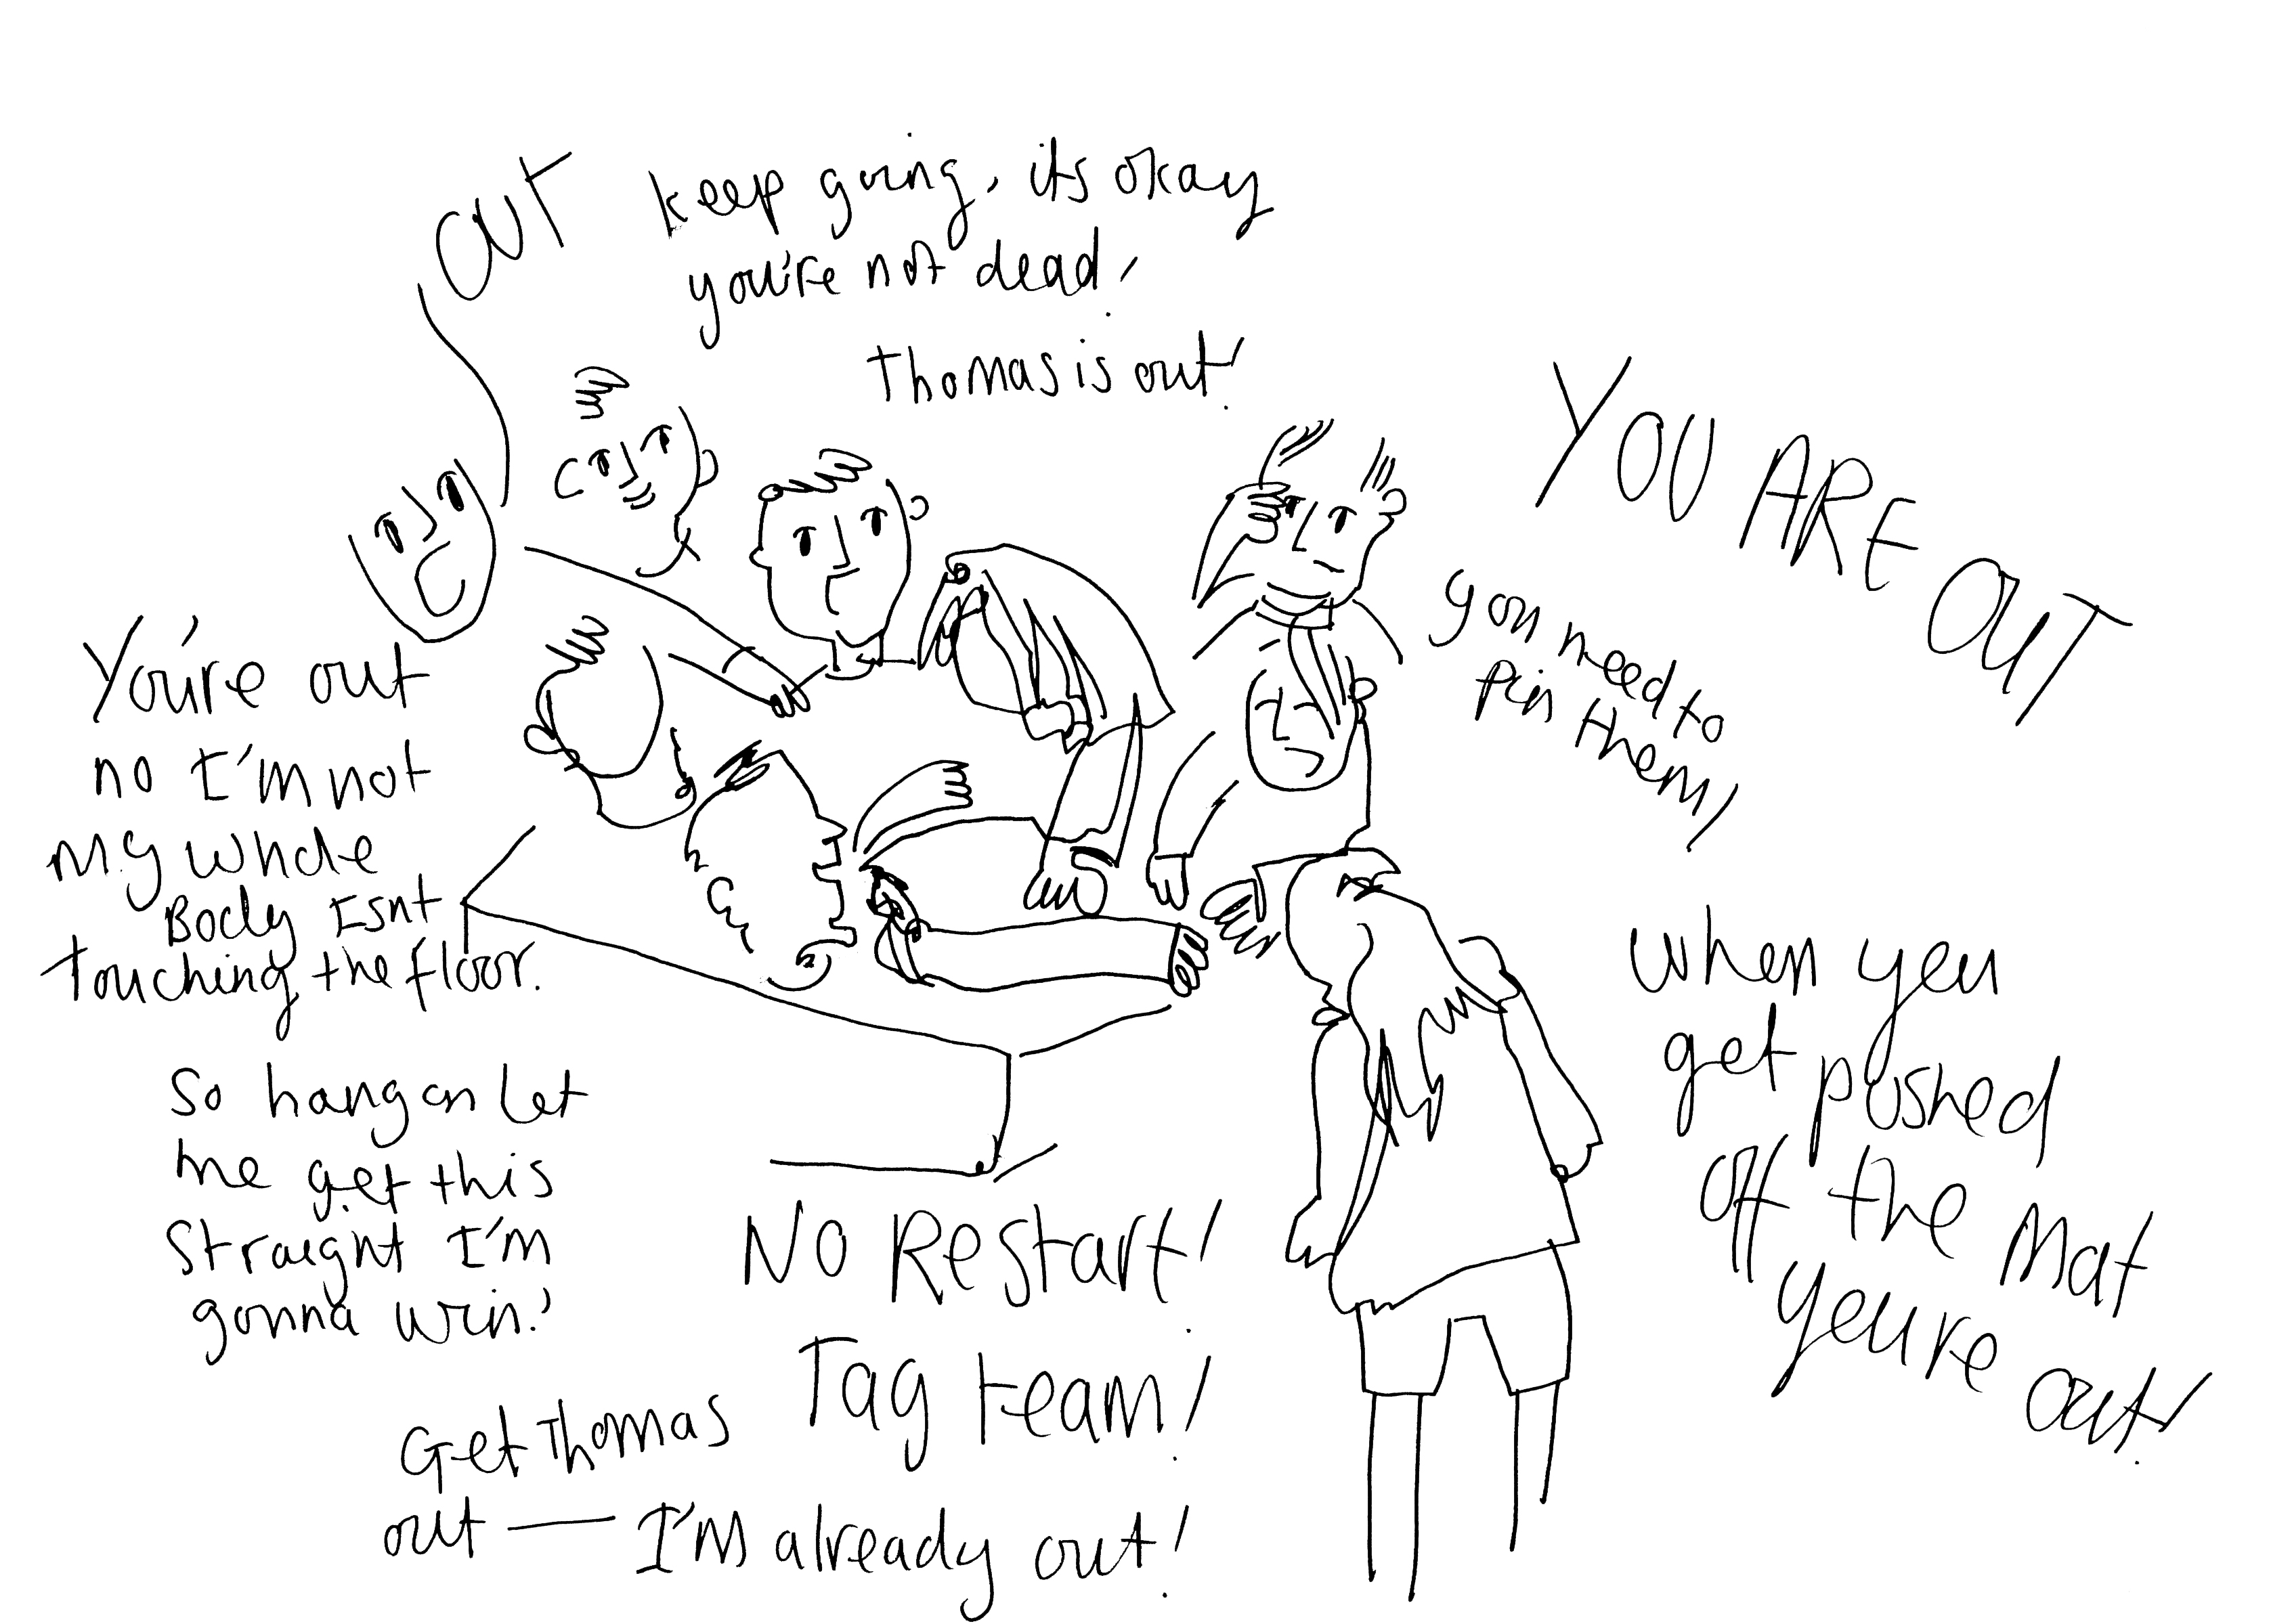 OUT
keep going, its okay
you're not dead,
Thomas is out!
YOU ARE OUT
you need to
pin them!
You're out
no I'm not
My whole
Body Isnt
touching the floor.
So hang on let
me get this
straight I'm
gonna win?
when you
get pushed
off the mat
you're out!
No Restart!
Tag team!
Get Thomas
out — I'm already out!